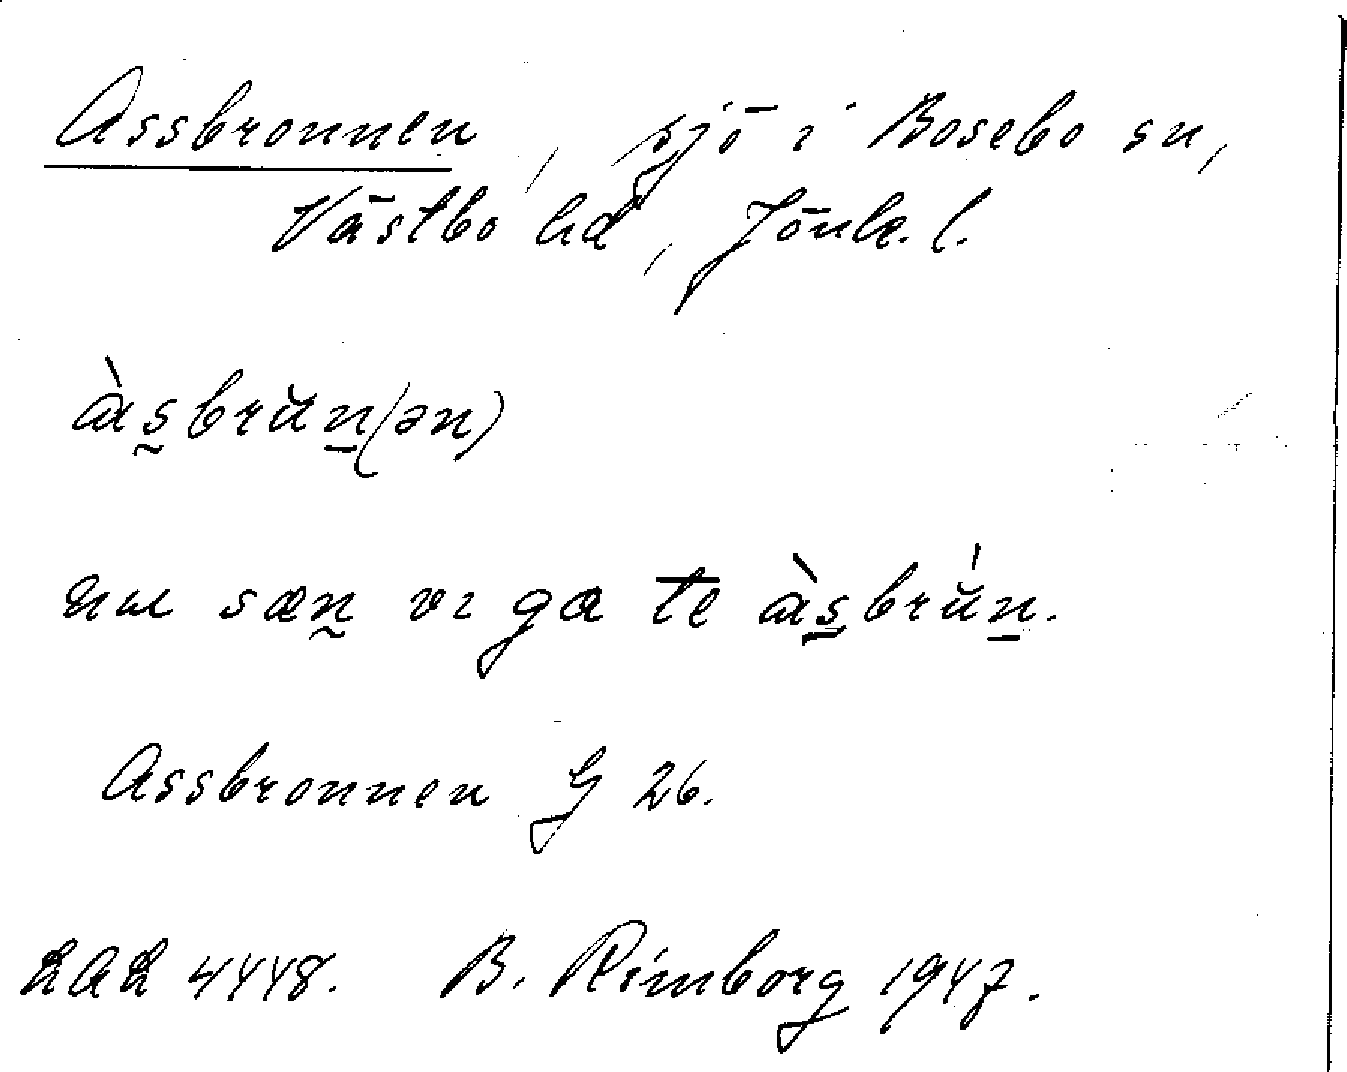 Assbronnen, sjö i Bosebo sn,
Västbo hd, Jönk. l.
às̰brŭn̲(ən)
sæn̰ vi ga te às̲brŭ́n̲.
Assbronnen G 26.
LAL 4448. B. Rimborg 1947.